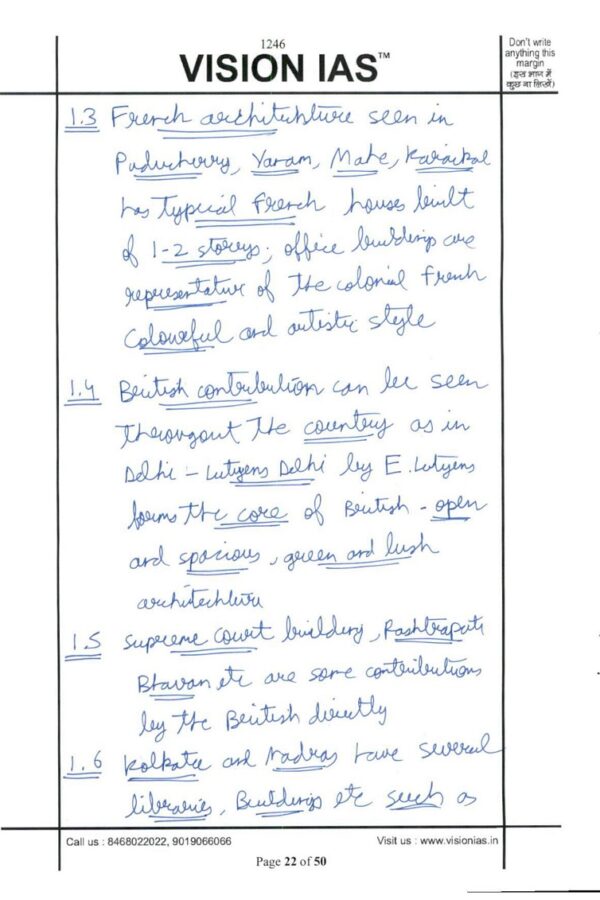 1246
VISION IAS™
Don't write
anything this
margin
(इस भाग में
कुछ ना लिखें)
1.3 French architechture seen in
Puducherry, Yanam, Mahe, Karaikal
has typical French houses built
of 1-2 storeys; office buildings are
representative of the colonial French
Colourful and artistic style
1.4 British contribution can be seen
througout the country as in
Delhi - Lutyens Delhi by E. Lutyens
forms the core of British - open
and spacious, green and lush
architechture
1.5 Supreme Court building, Rashtrapati
Bhavan etc are some contributions
by the British directly
1.6 Kolkata and Madras have several
libraries, Buildings etc such as
Call us : 8468022022, 9019066066
Visit us : www.visionias.in
Page 22 of 50